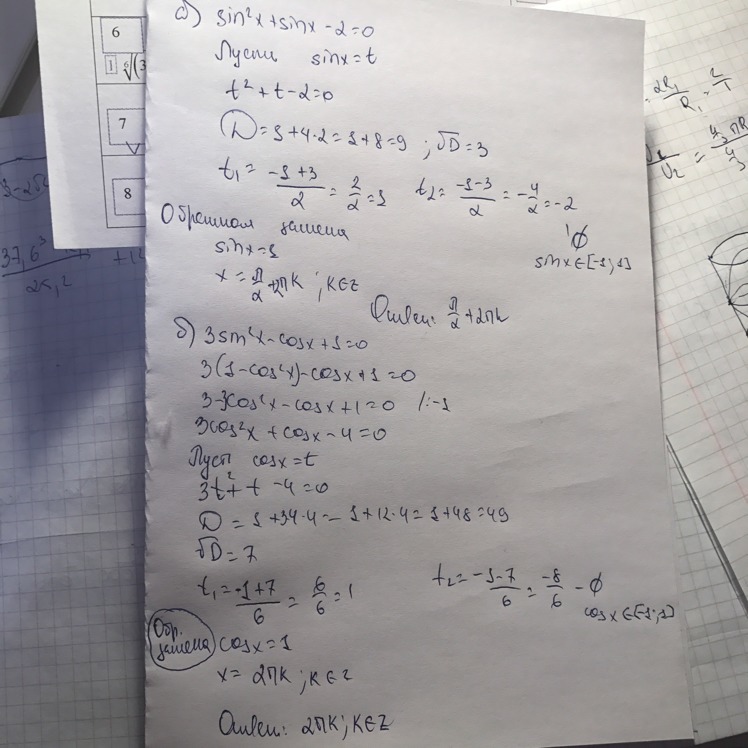 6
1 ⁶√(3
7
8
а) sin²x + sinx - 2 = 0
Пусть sinx = t
t² + t - 2 = 0
D = 1 + 4·2 = 1 + 8 = 9 ; √D = 3
t₁ = (-1+3)/2 = 2/2 = 1 t₂ = (-1-3)/2 = -4/2 = -2
∅
Обратная замена
sinx ∈ [-1; 1]
sinx = 1
x = π/2 + 2πk ; k∈Z
Ответ: π/2 + 2πk
б) 3sin²x - cosx + 1 = 0
3(1 - cos²x) - cosx + 1 = 0
3 - 3cos²x - cosx + 1 = 0 /:-1
3cos²x + cosx - 4 = 0
Пусть cosx = t
3t² + t - 4 = 0
D = 1 + 34·4 = 1 + 12·4 = 1 + 48 = 49
√D = 7
t₁ = (-1+7)/6 = 6/6 = 1 t₂ = (-1-7)/6 = -8/6 - ∅
cosx ∈ [-1; 1]
Обр. замена cosx = 1
x = 2πk ; k∈Z
Ответ: 2πk ; k∈Z
37,6³
2R₁/R₁ = 2/1